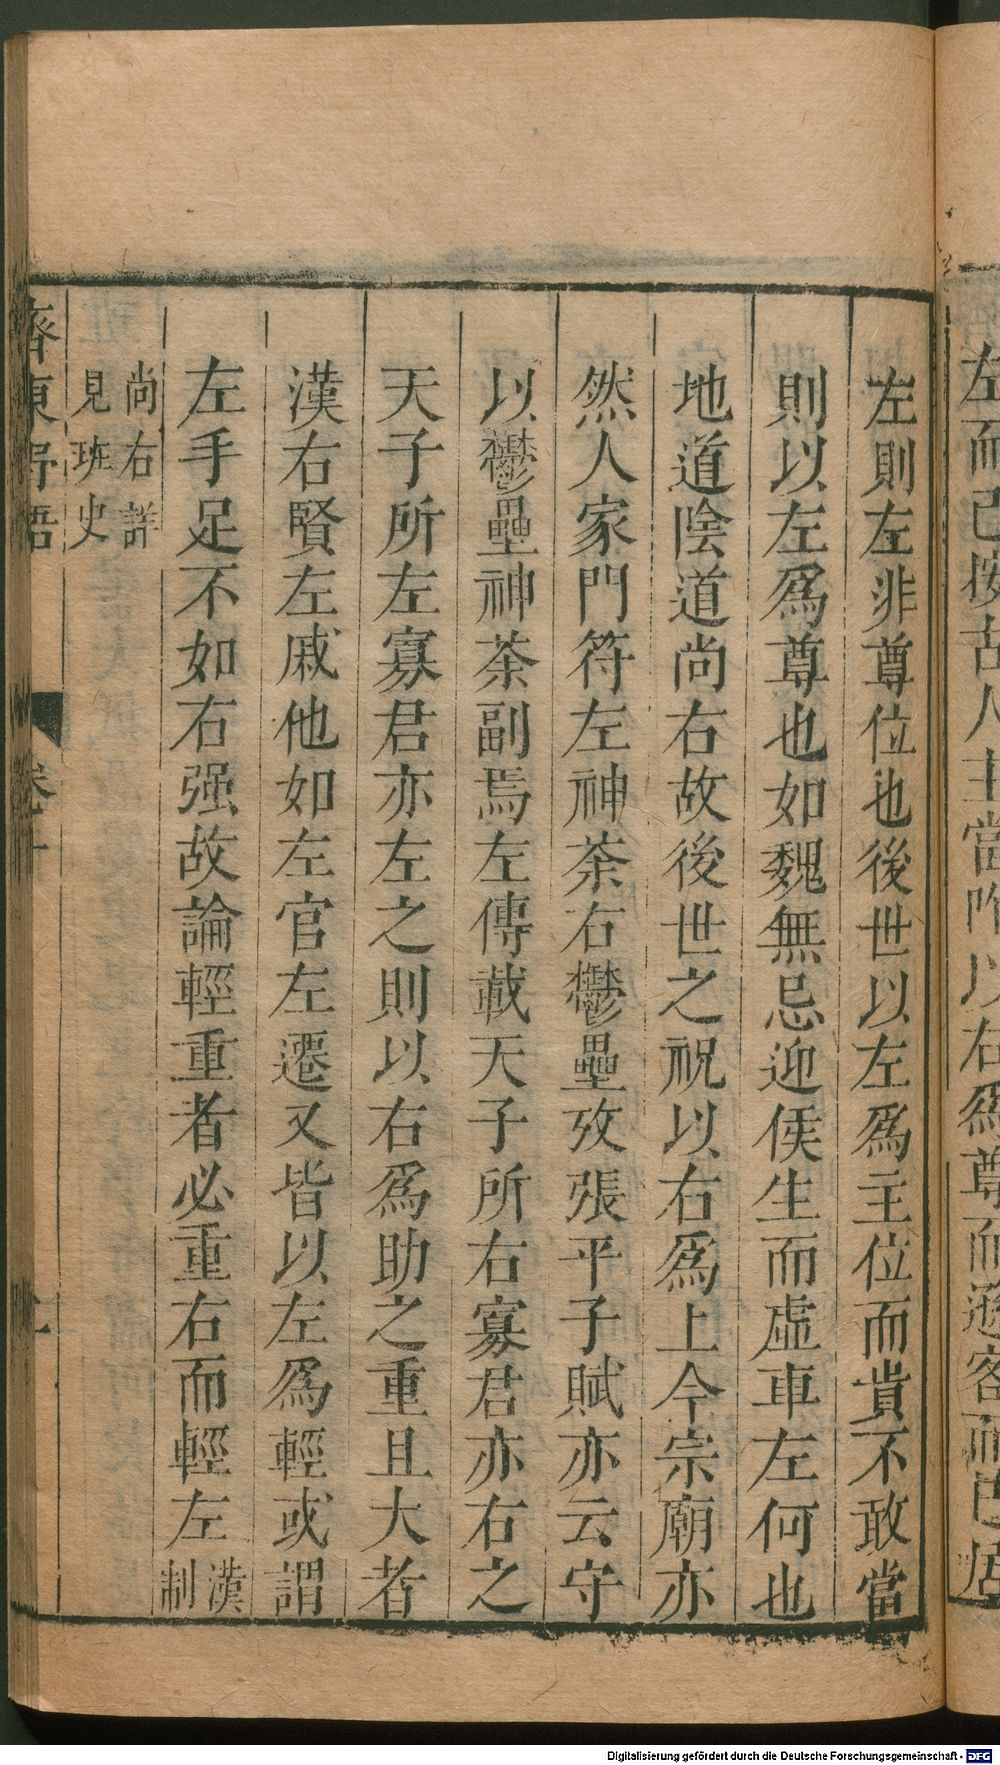 左而已按古人主當阼以右爲尊而遜客而已居
左則左非尊位也後世以左爲主位而貴不敢當
則以左爲尊也如魏無忌迎侯生而虛車左何也
地道陰道尚右故後世之祝以右爲上今宗廟亦
然人家門符左神荼右鬱壘攷張平子賦亦云守
以鬱壘神荼副焉左傳載天子所右寡君亦右之
天子所左寡君亦左之則以右爲助之重且大者
漢右賢左戚他如左官左遷又皆以左爲輕或謂
左手足不如右强故論輕重者必重右而輕左漢制
尚右詳見班史
齊東野語 卷十
Digitalisierung gefördert durch die Deutsche Forschungsgemeinschaft - DFG